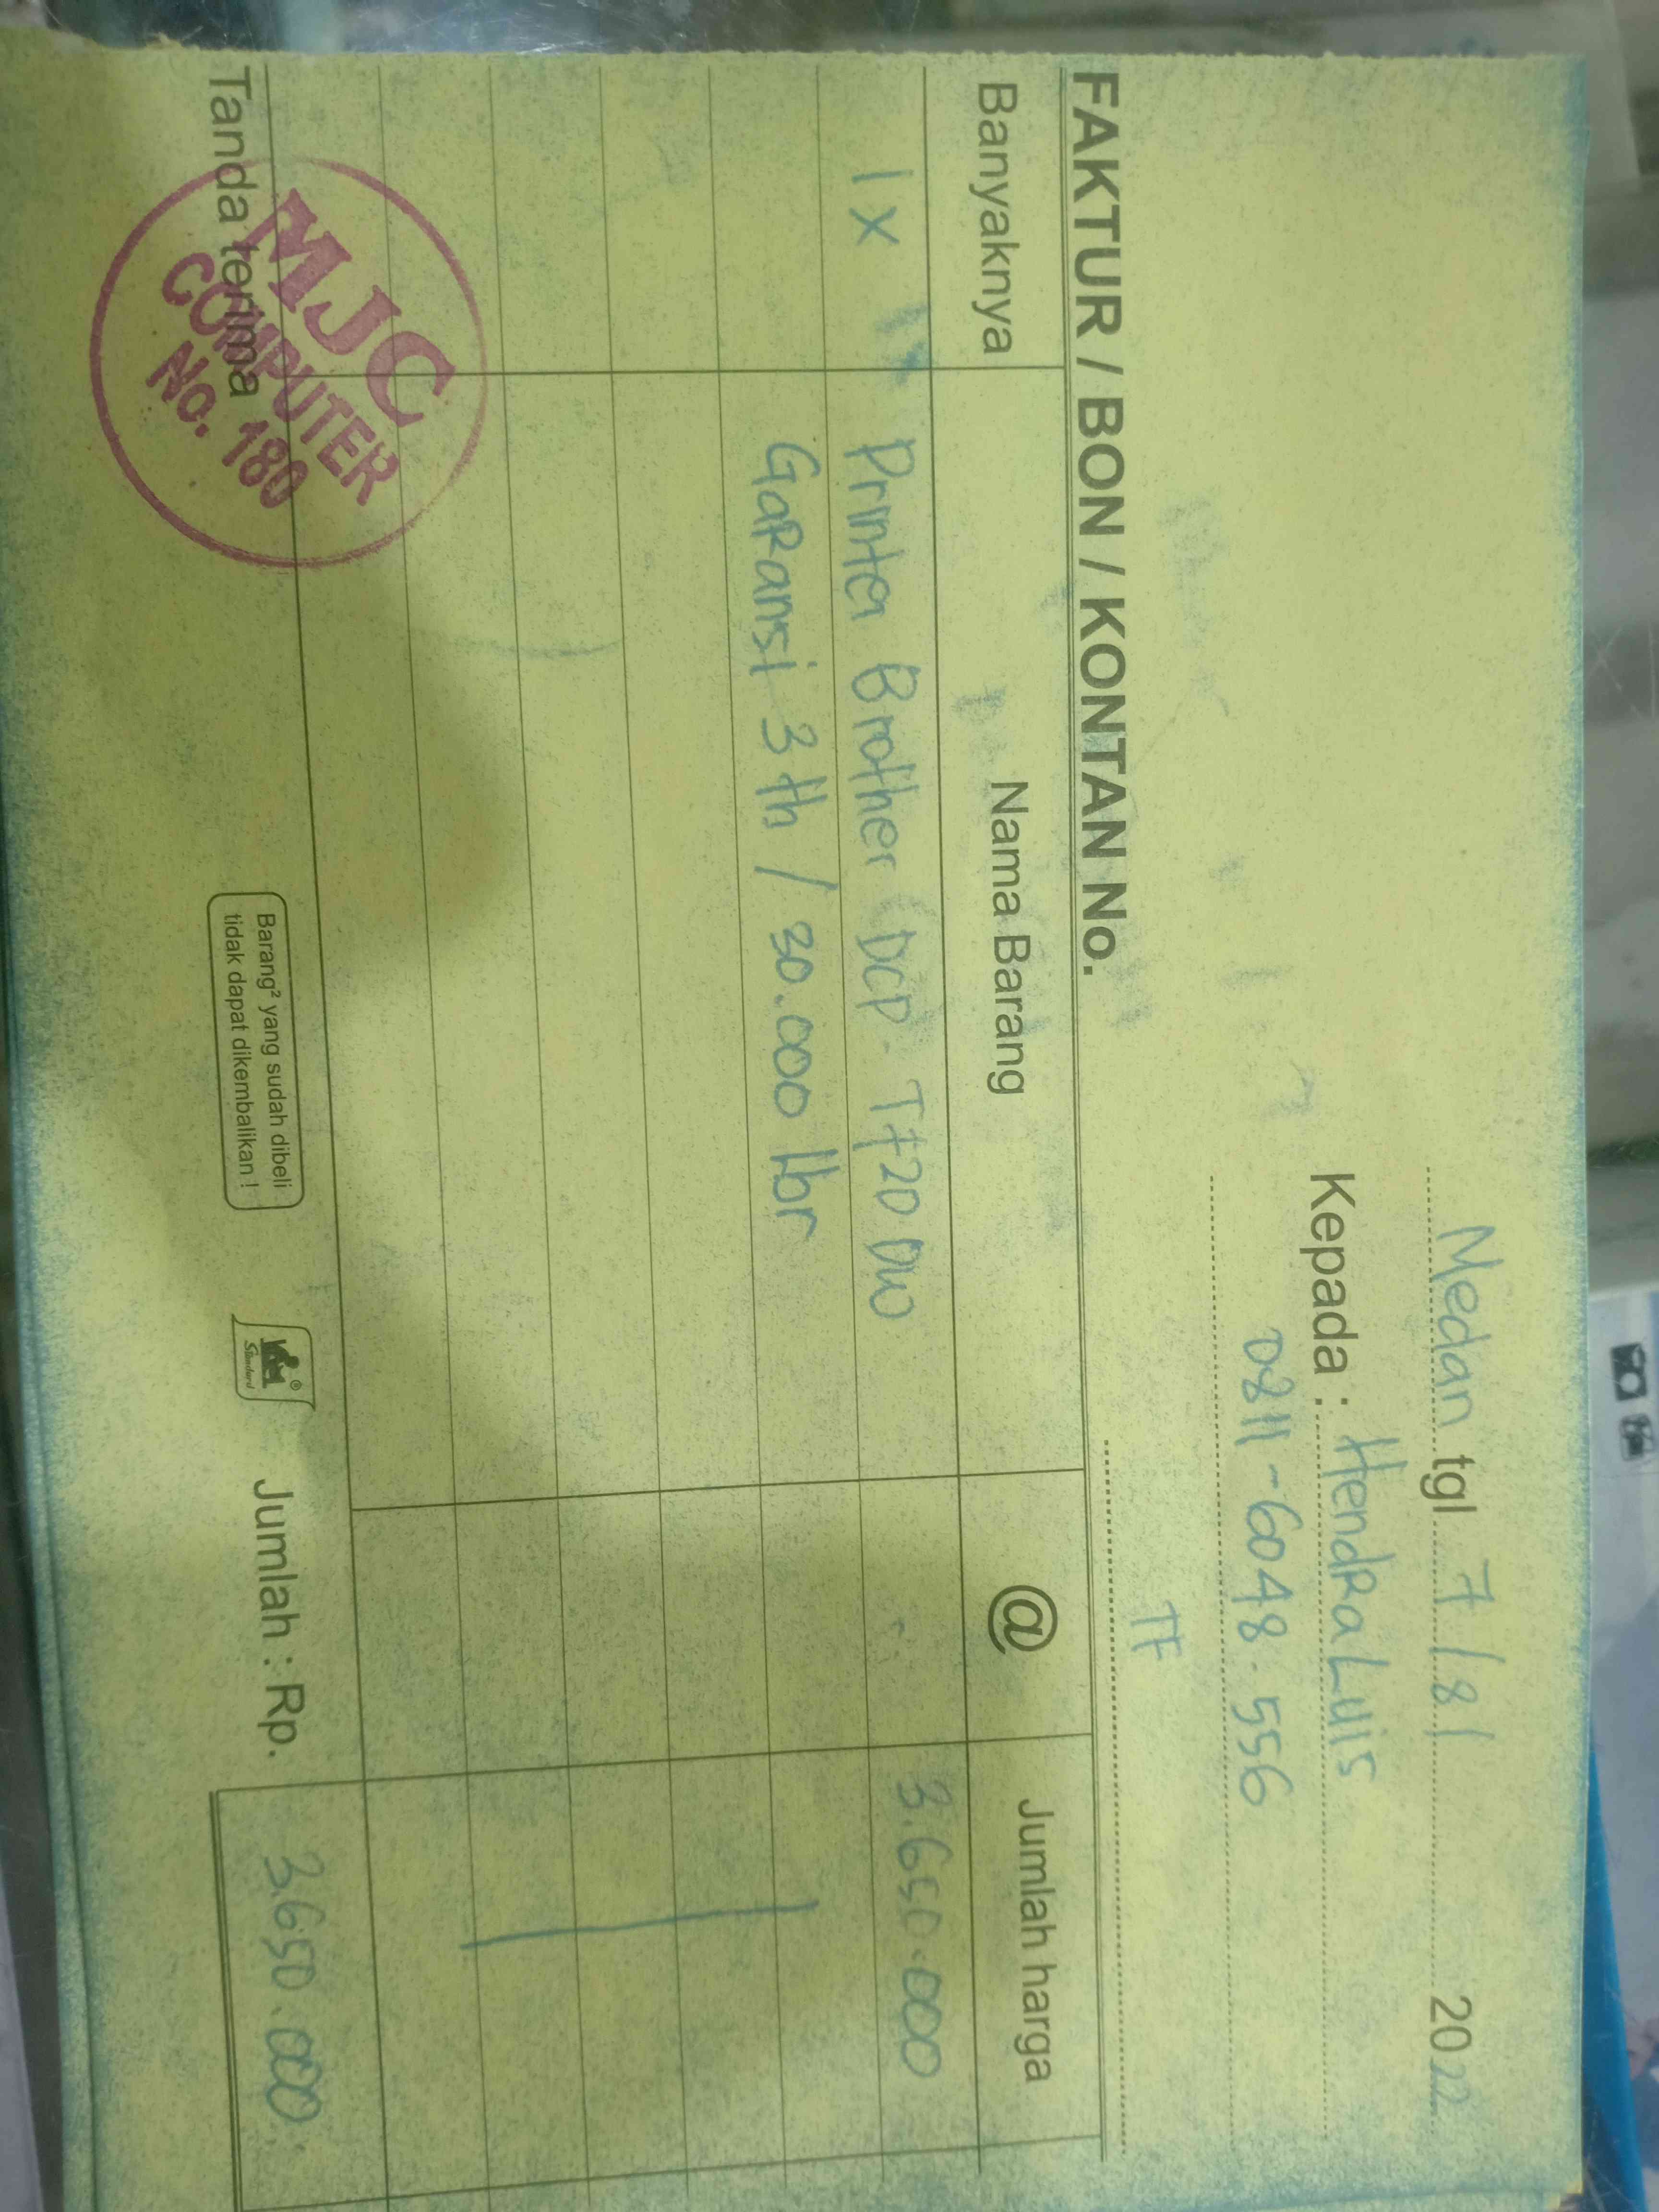 Medan tgl 7/8/ 2022
Kepada : Hendra Luis
0811-6048-556
TF
FAKTUR / BON / KONTAN No.
Banyaknya Nama Barang @ Jumlah harga
1 x Printer Brother DCP-T720 DW 3.650.000
Garansi 3 th / 30.000 lbr
Tanda terima
MJC
COMPUTER
No. 180
Barang² yang sudah dibeli
tidak dapat dikembalikan !
Standard
Jumlah : Rp. 3.650.000